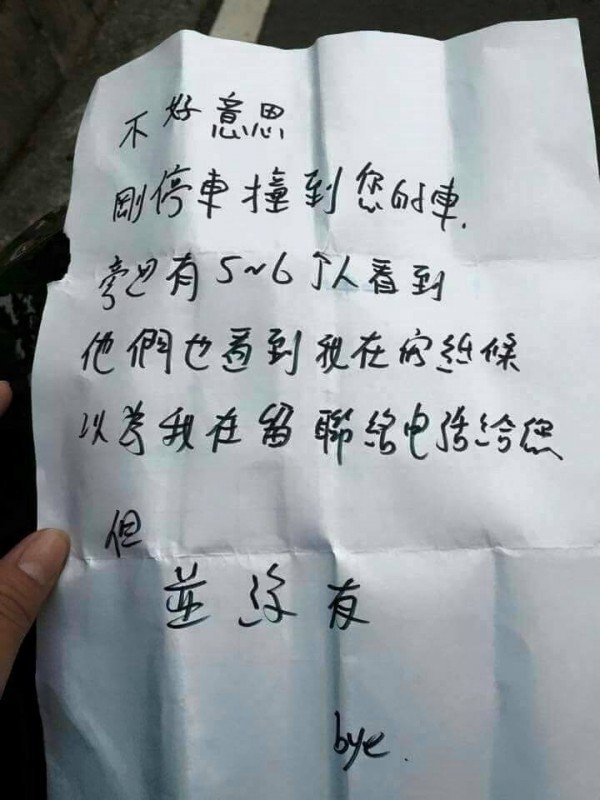 不好意思
剛停車撞到您的車.
旁边有5~6个人看到
他們也看到我在寫紙條
以為我在留聯絡电話給您
但
並沒有
bye.